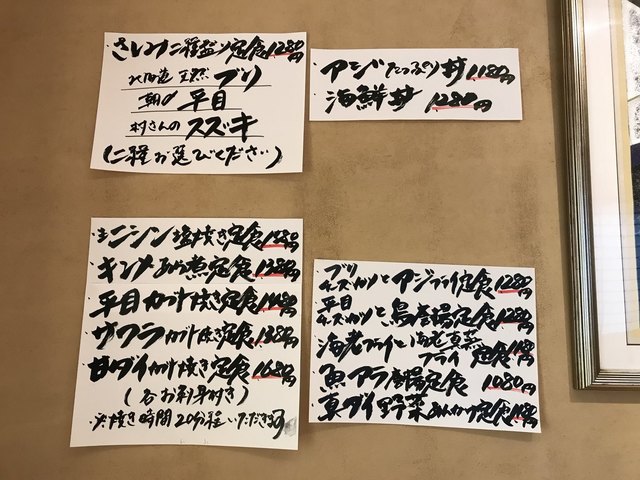 さしみ二種盛り定食1280円
北海道 天然 ブリ
朝〆 平目
村さんの スズキ
(二種お選びください)
・アジたっぷり丼1,180円
・海鮮丼 1280円
・生ニシン塩焼き定食
・キンメあら煮定食1380円
・平目カブト焼き定食
・サワラカブト焼き定食1380円
・甘ダイカブト焼き定食1680円
(各お刺身付き)
※焼き時間20分程いただきます
・ブリチーズカツとアジフライ定食1280円
・平目チーズカツと鳥唐揚定食1280円
・海老フライと フライ 定食
・魚アラ唐揚定食 1080円
・真ダイ野菜あんかけ定食